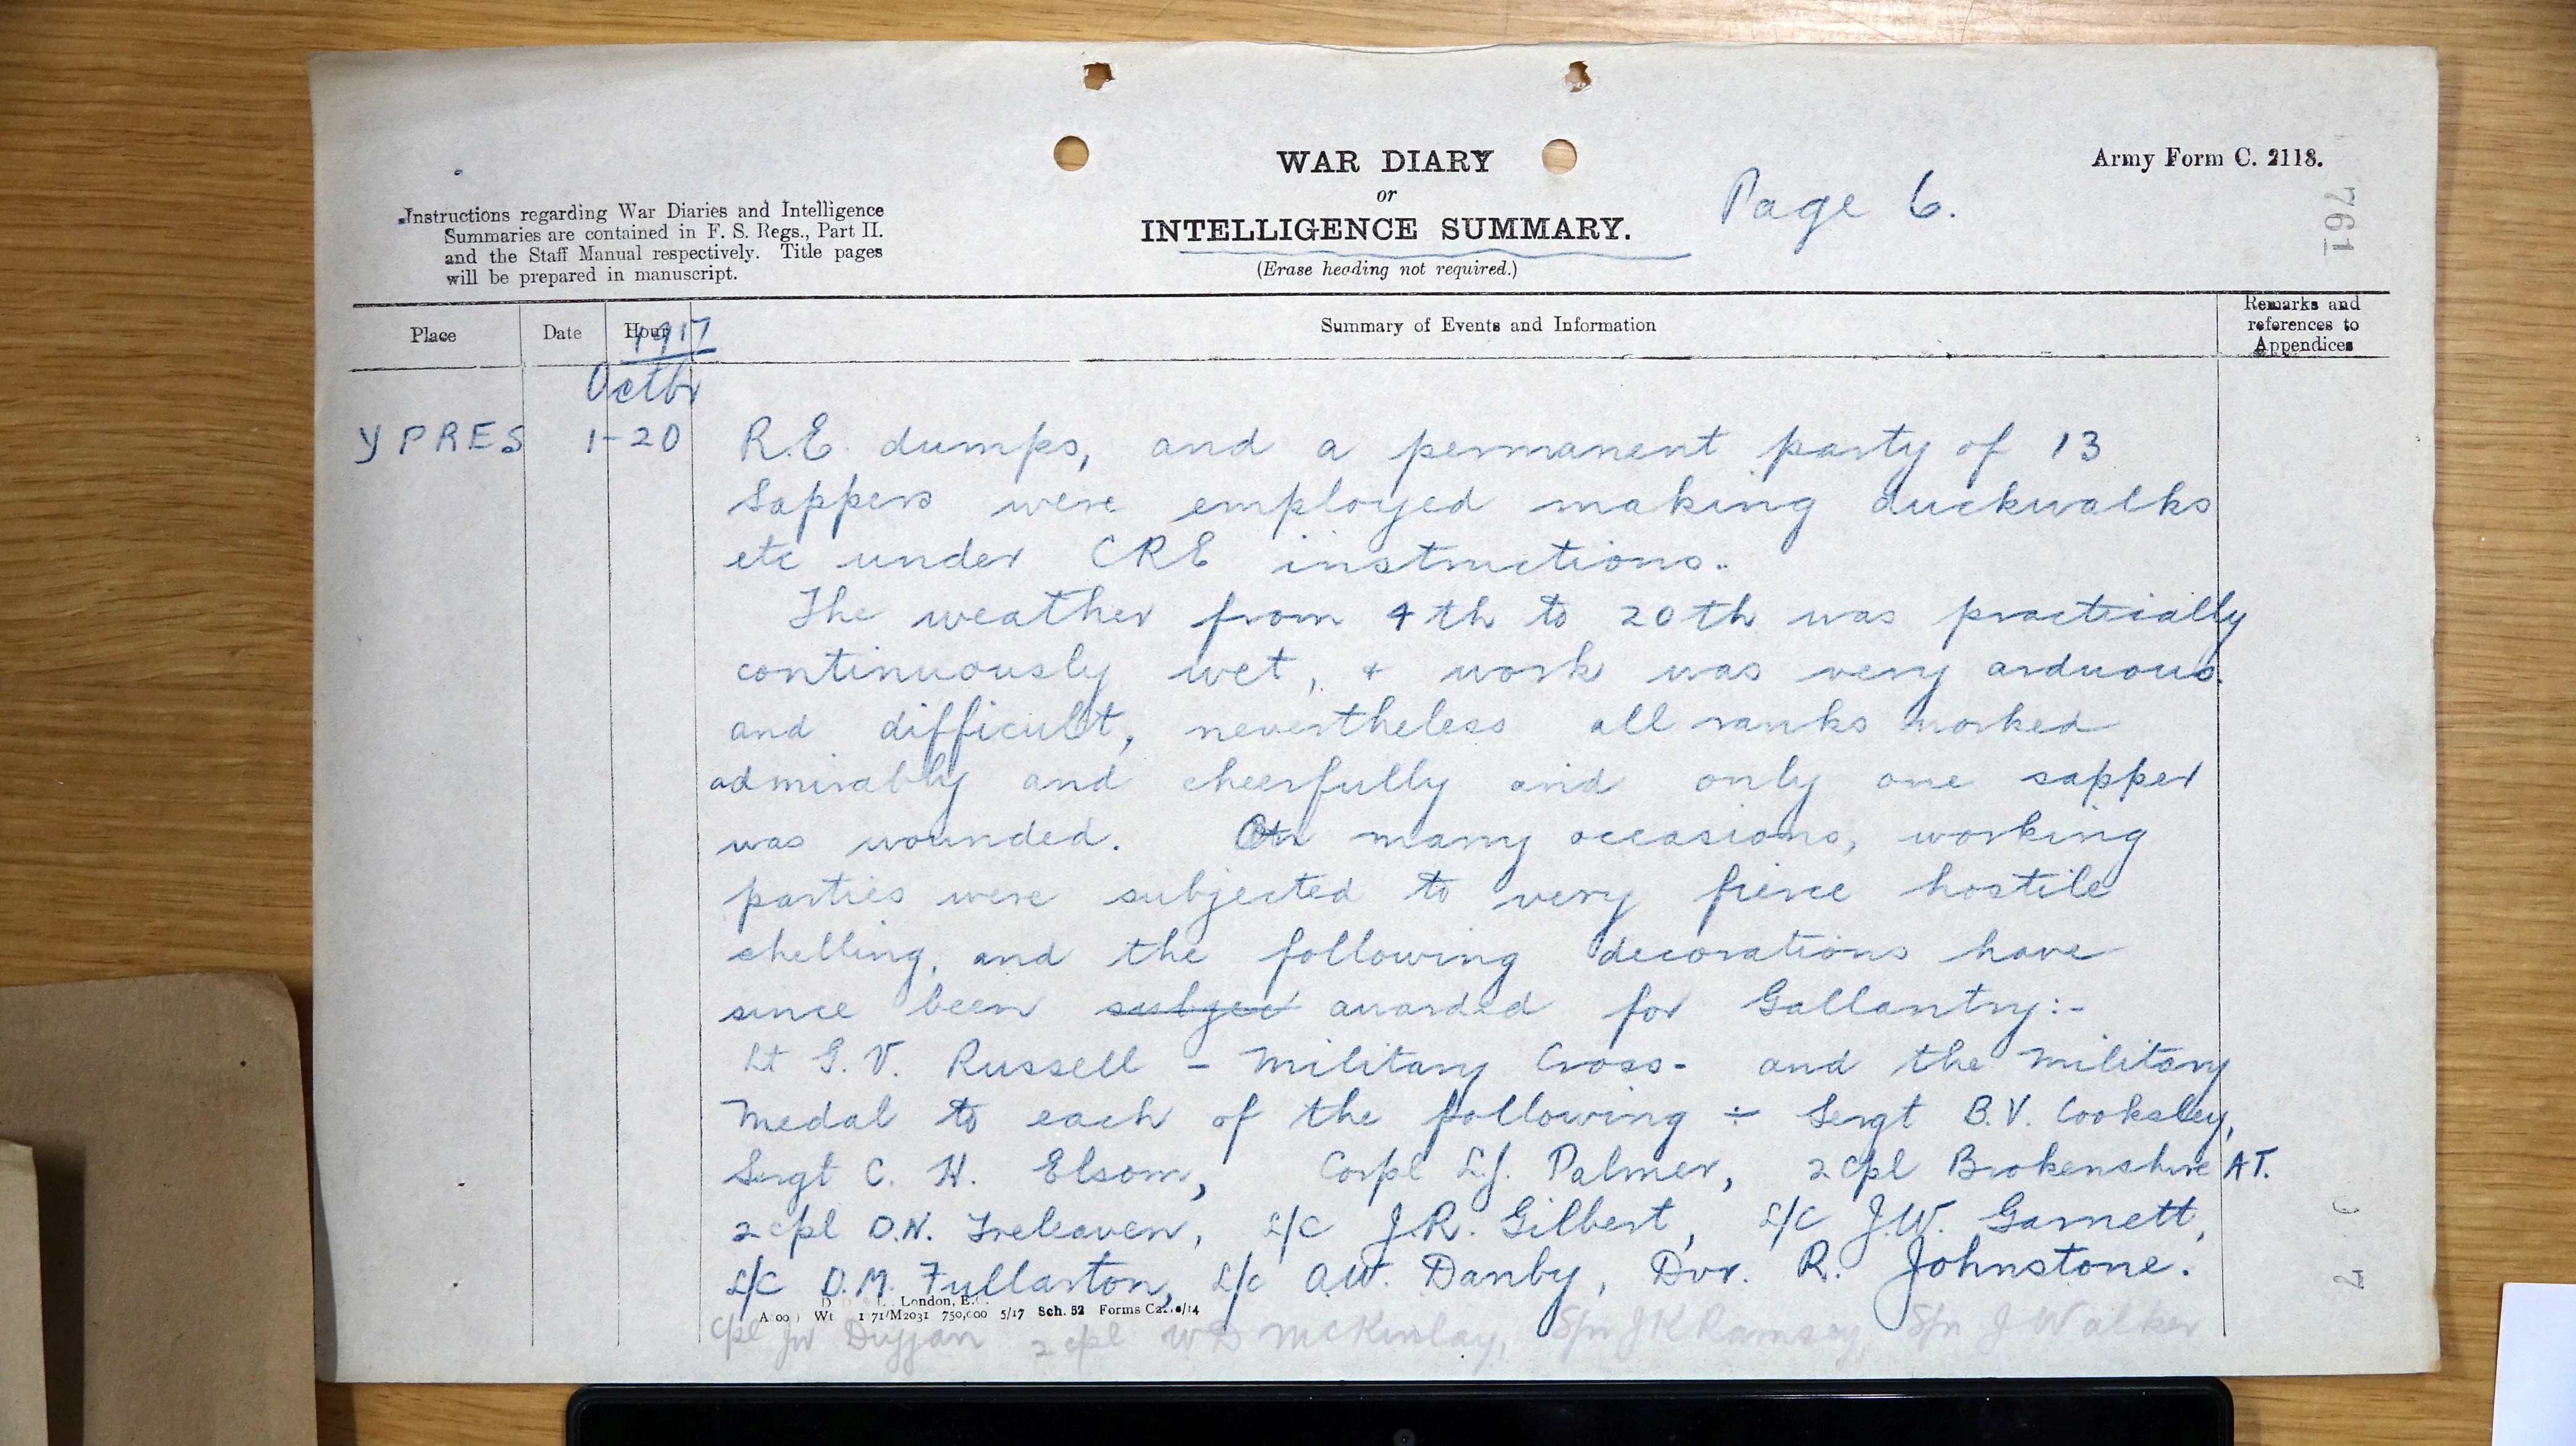 WAR DIARY
or
INTELLIGENCE SUMMARY.
(Erase heading not required.)
Page 6.
Army Form C. 2118.
761
Instructions regarding War Diaries and Intelligence
Summaries are contained in F. S. Regs., Part II.
and the Staff Manual respectively. Title pages
will be prepared in manuscript.
Place Date Hour Summary of Events and Information Remarks and
references to
Appendices
1917
Octbr
YPRES 1-20 R.E. dumps, and a permanent party of 13
Sappers were employed making duckwalks
etc under CRE instructions.
The weather from 4th to 20th was practically
continuously wet, + work was very arduous
and difficult, nevertheless all ranks worked
admirably and cheerfully and only one sapper
was wounded. On many occasions, working
parties were subjected to very fierce hostile
shelling, and the following decorations have
since been subjec awarded for Gallantry:-
Lt G.V. Russell - Military Cross - and the Military
Medal to each of the following ÷ Sergt B.V. Cooksley,
Sergt C. H. Elsom, Corpl L.J. Palmer, 2 cpl Brokenshire AT.
2 cpl D.N. Treleaven, L/C J.R. Gilbert, L/C J.W. Garnett,
L/C D.M. Fullarton, L/c A.W. Danby, Dvr. R. Johnstone.
London, E.
Wt 1 71/M2031 750,000 5/17 Sch. 52 Forms /14
Cpl JW Duggan 2 cpl WD McKinlay, Spr JK Ramsay, Spr J Walker